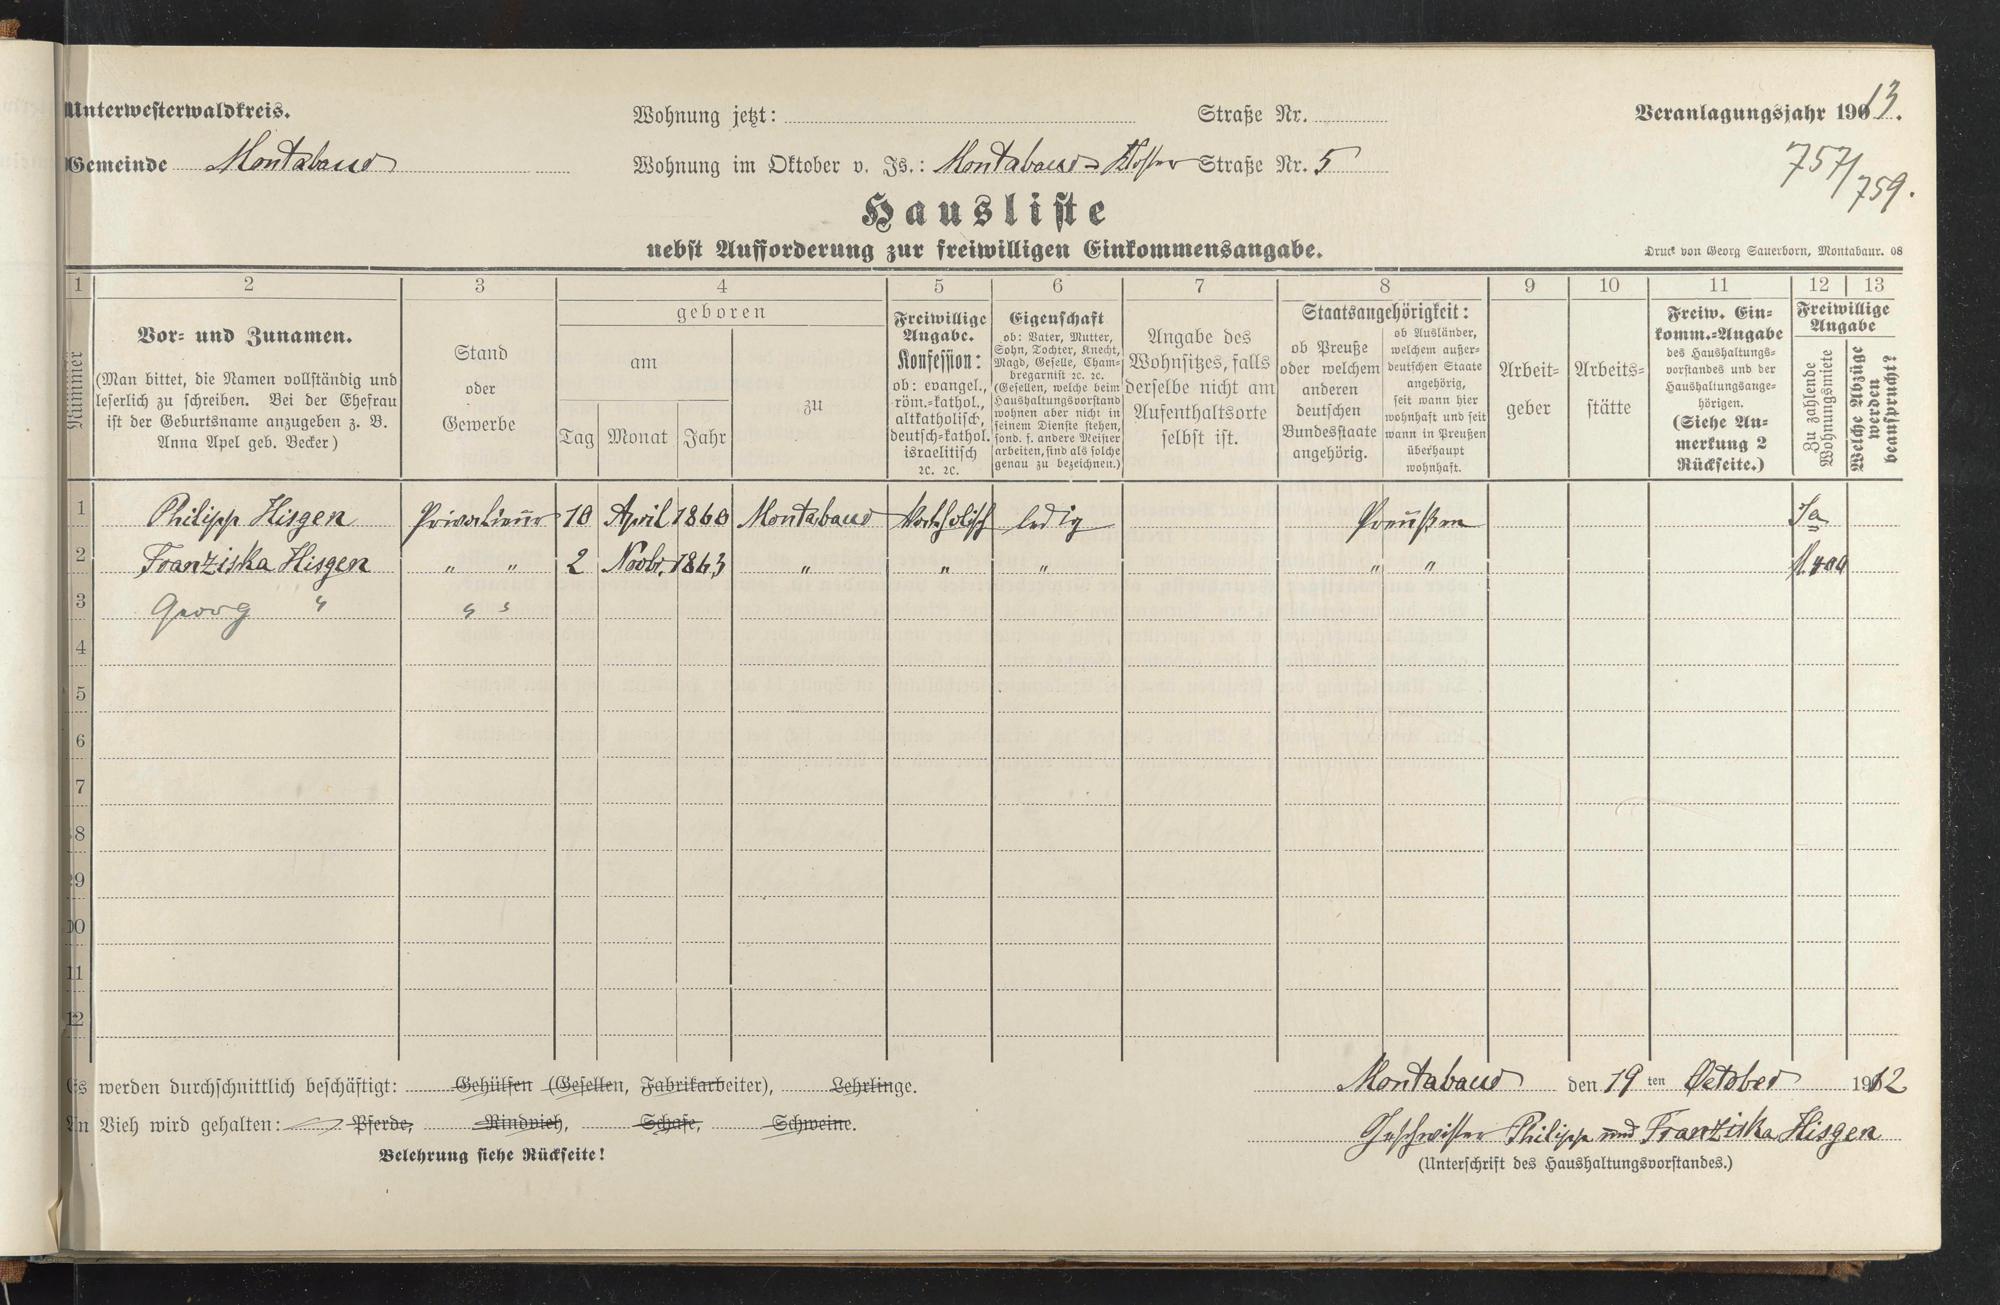 Unterwesterwaldkreis.
Wohnung jetzt: Straße Nr.
Veranlagungsjahr 1913.
Gemeinde Montabaur
Wohnung im Oktober v. Js.: Montabaur= Kloster Straße Nr. 5
757/759.
Hausliste
nebst Aufforderung zur freiwilligen Einkommensangabe.
Druck von Georg Sauerborn, Montabaur. 08
1 2 3 4 5 6 7 8 9 10 11 12 13
Nummer
Vor- und Zunamen.
(Man bittet, die Namen vollständig und
leserlich zu schreiben. Bei der Ehefrau
ist der Geburtsname anzugeben z. B.
Anna Apel geb. Becker)
Stand
oder
Gewerbe
geboren
am
Tag Monat Jahr
zu
Freiwillige
Angabe.
Konfession:
ob: evangel.,
röm.-kathol.,
altkatholisch,
deutsch-kathol.
israelitisch
ꝛc. ꝛc.
Eigenschaft
ob: Vater, Mutter,
Sohn, Tochter, Knecht,
Magd, Geselle, Cham-
bregarnist ꝛc. ꝛc.
(Gesellen, welche beim
Haushaltungsvorstand
wohnen aber nicht in
seinem Dienste stehen,
sond. f. andere Meister
arbeiten, sind als solche
genau zu bezeichnen.)
Angabe des
Wohnsitzes, falls
derselbe nicht am
Aufenthaltsorte
selbst ist.
Staatsangehörigkeit:
ob Preuße
oder welchem
anderen
deutschen
Bundesstaate
angehörig.
ob Ausländer,
welchem außer-
deutschen Staate
angehörig,
seit wann hier
wohnhaft und seit
wann in Preußen
überhaupt
wohnhaft.
Arbeit-
geber
Arbeits-
stätte
Freiw. Ein-
komm.-Angabe
des Haushaltungs-
vorstandes und der
Haushaltungsange-
hörigen.
(Siehe An-
merkung 2
Rückseite.)
Freiwillige
Angabe
Zu zahlende
Wohnungsmiete
Welche Abzüge
werden
beansprucht?
1 Philipp Hisgen Privatieur 10 April 1860 Montabaur katholisch ledig Preußen Ja
2 Franziska Hisgen " " 2 Novbr. 1863 " " " " " M. 400
3 Georg " " "
4
5
6
7
8
9
10
11
12
Es werden durchschnittlich beschäftigt: Gehülfen (Gesellen, Fabrikarbeiter), Lehrlinge.
Montabaur den 19 ten October 1912
An Vieh wird gehalten: Pferde, Rindvieh, Schafe, Schweine.
Geschwister Philipp und Franziska Hisgen
Belehrung siehe Rückseite!
(Unterschrift des Haushaltungsvorstandes.)